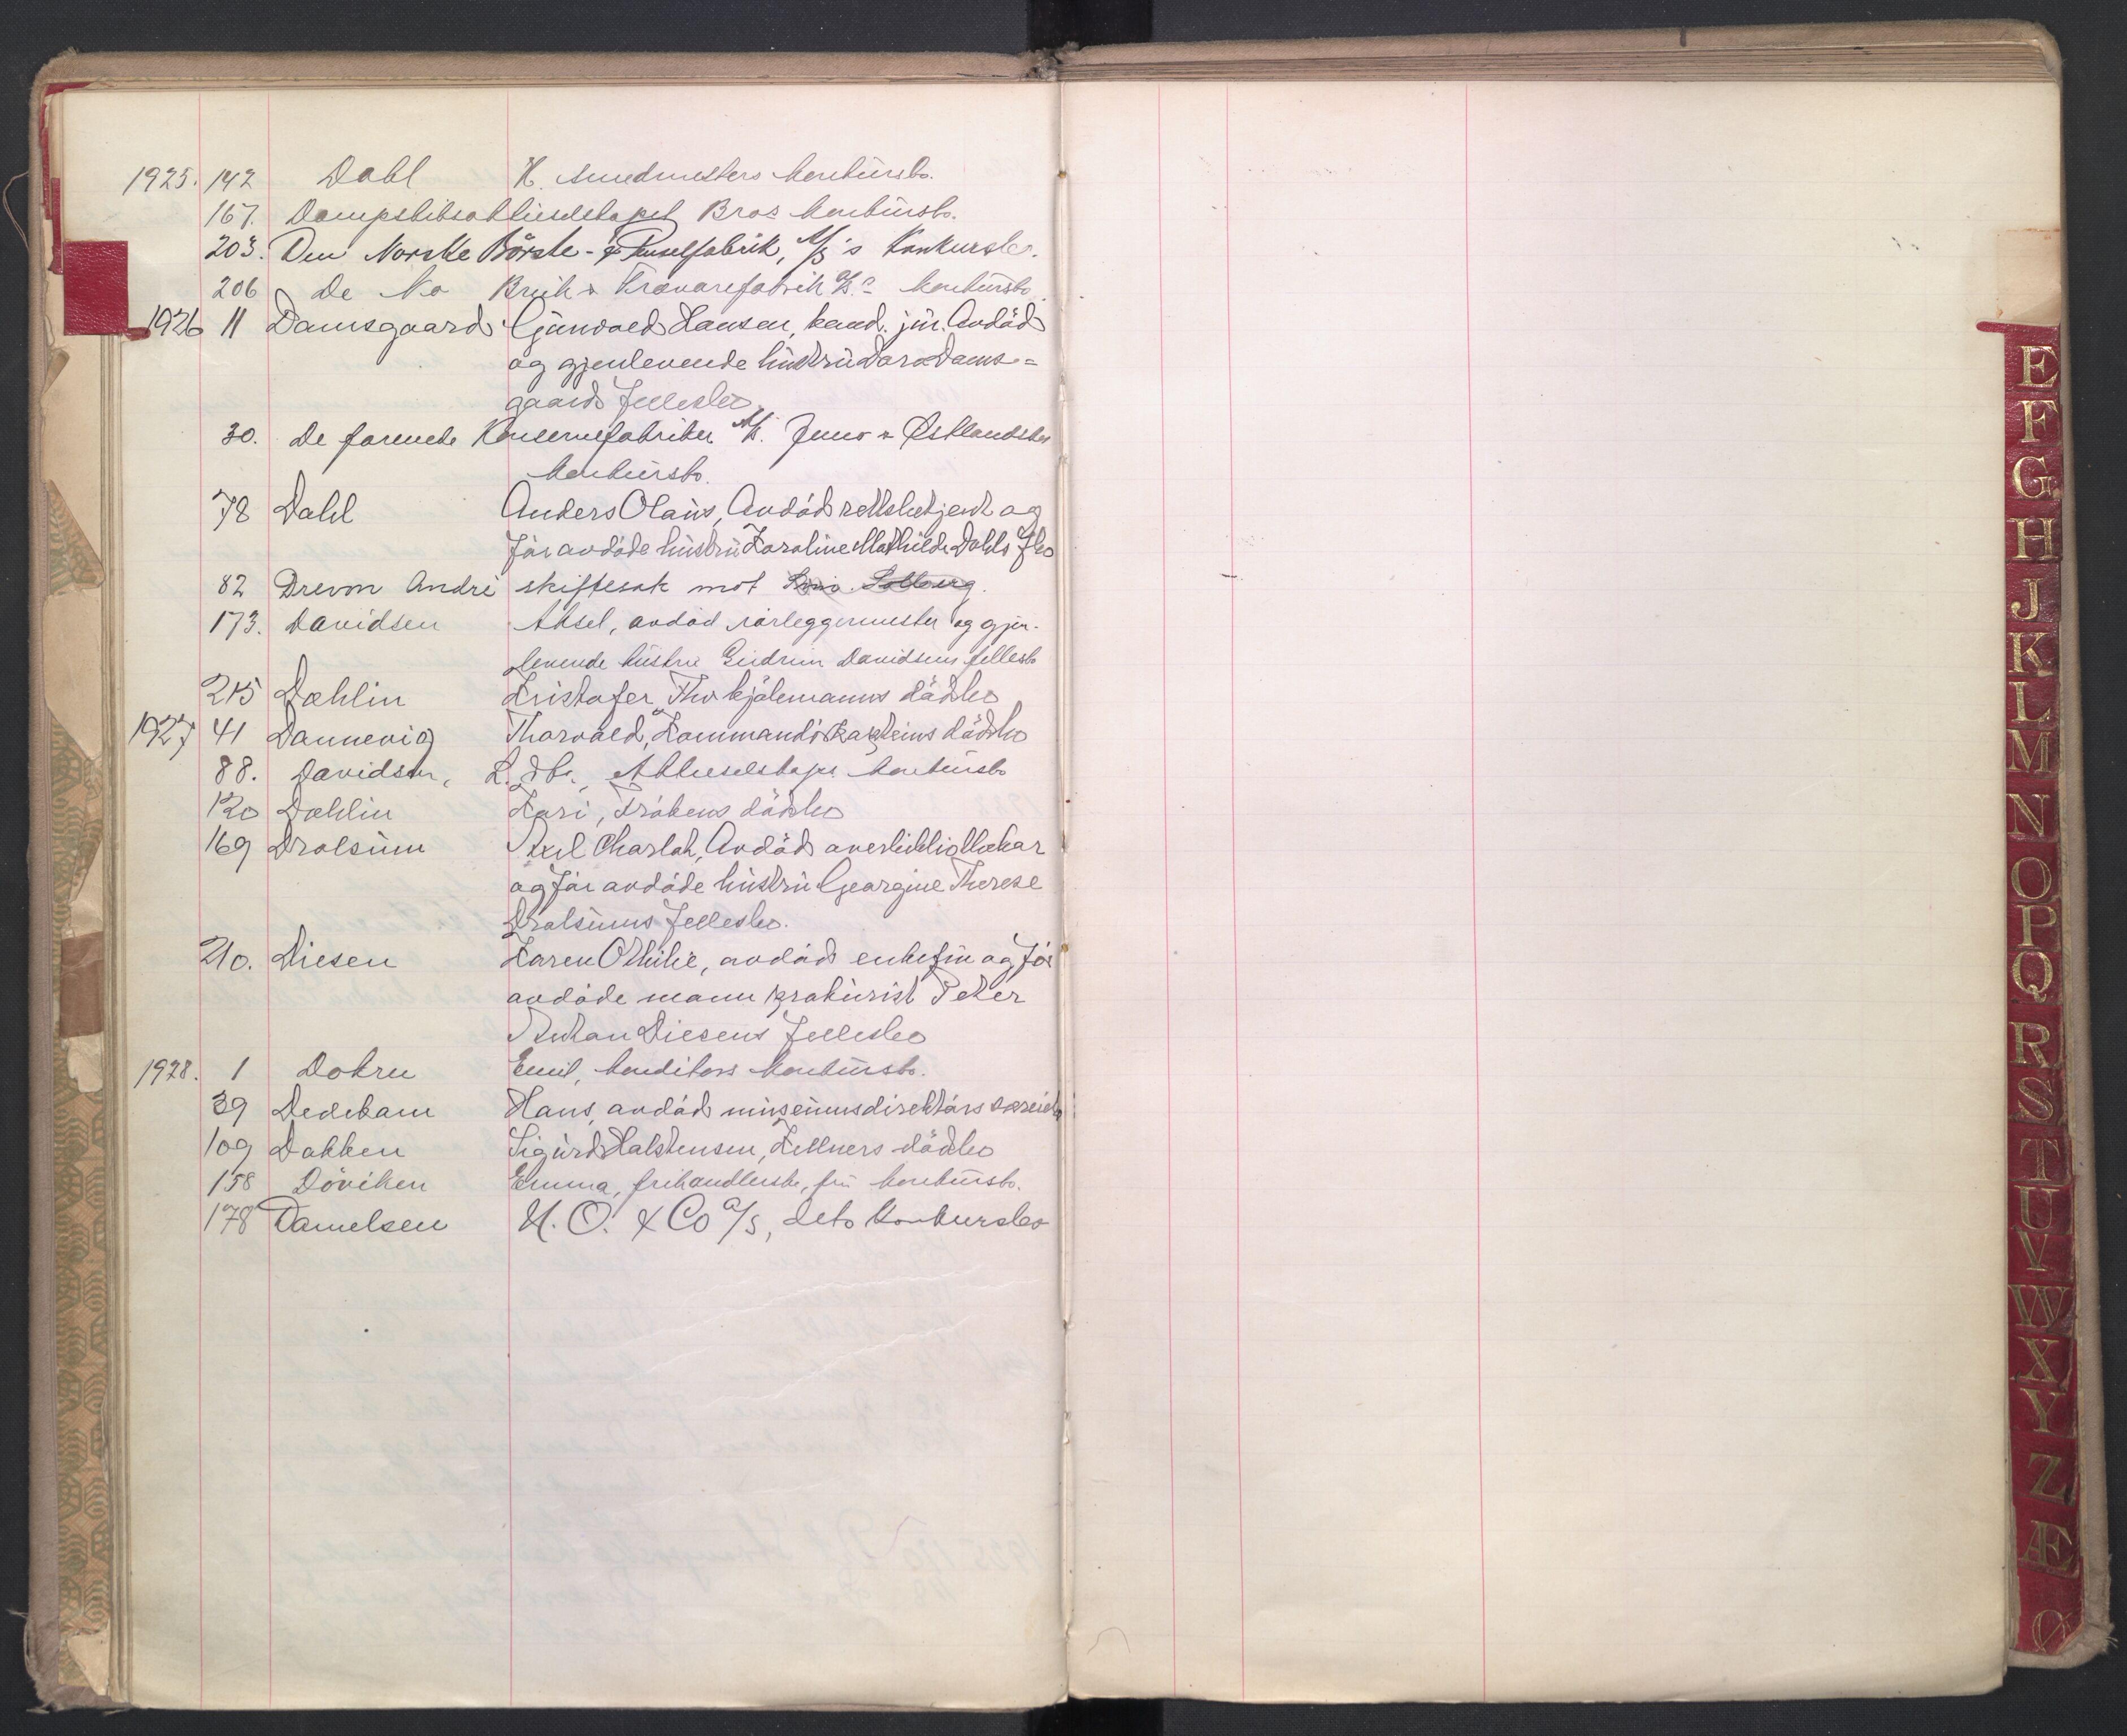 1925. 142 Dahl H. Smedmesters konkursbo.
167. Dampskibsaktieselskapet Bros konkursbo.
203. Den Norske Börste- & Penselfabrik, A/S's Konkursbo.
206 De No Brük & Trævarefabrik A/S konkursbo.
1926 11 Damsgaard Gunvald Hansen, kand. jur. Avdød
og gjenlevende hustru Dora Dams=
gaards Fellesbo
30. De forenede Konservefabriker A/S. Juno & Østlandske
konkursbo.
78 Dahl Anders Olaus, Avdød rettsbetjent og
før avdøde hustru Karoline Mathilde Dahls Fbo
82 Drevon André skiftesak mot Solberg.
173. Davidsen Aksel, avdød rørleggermester og gjen-
levende hustru Gudrun Davidsens fellesbo
215 Dæhlin Kristofer, Thv kjølemanns dødsbo
1927 41 Dannevig Thorvald, Kommandörkapteins dödsbo
88. Davidsen, L. Aktieselskaps konkursbo
120 Dæhlin Kari, Frökens dödsbo
169 Dralsum Axel Charlot, Avdød overliktlioktekar
og før avdöde hustru Georgine Therese
Dralsums Fellesbo.
210. Diesen Karen Othilie, avdød enkefru og før
avdöde mann prokurist Peter
Anton Diesens Fellesbo
1928. 1 Dohrn Emil, konditors konkursbo.
39 Dedekam Hans, avdöd museumsdirektörs særeiebo
109 Dokken Sigurd Halstensen, Kellners dødsbo
158 Döviken Emma, frihandlerske, fru konkursbo.
178 Danielsen H. O. & Co a/s, dets konkursbo
E
F
G
H
J
K
L
M
N
O
P
Q
R
S
T
U
V
W
X
Y
Z
Æ
Ø